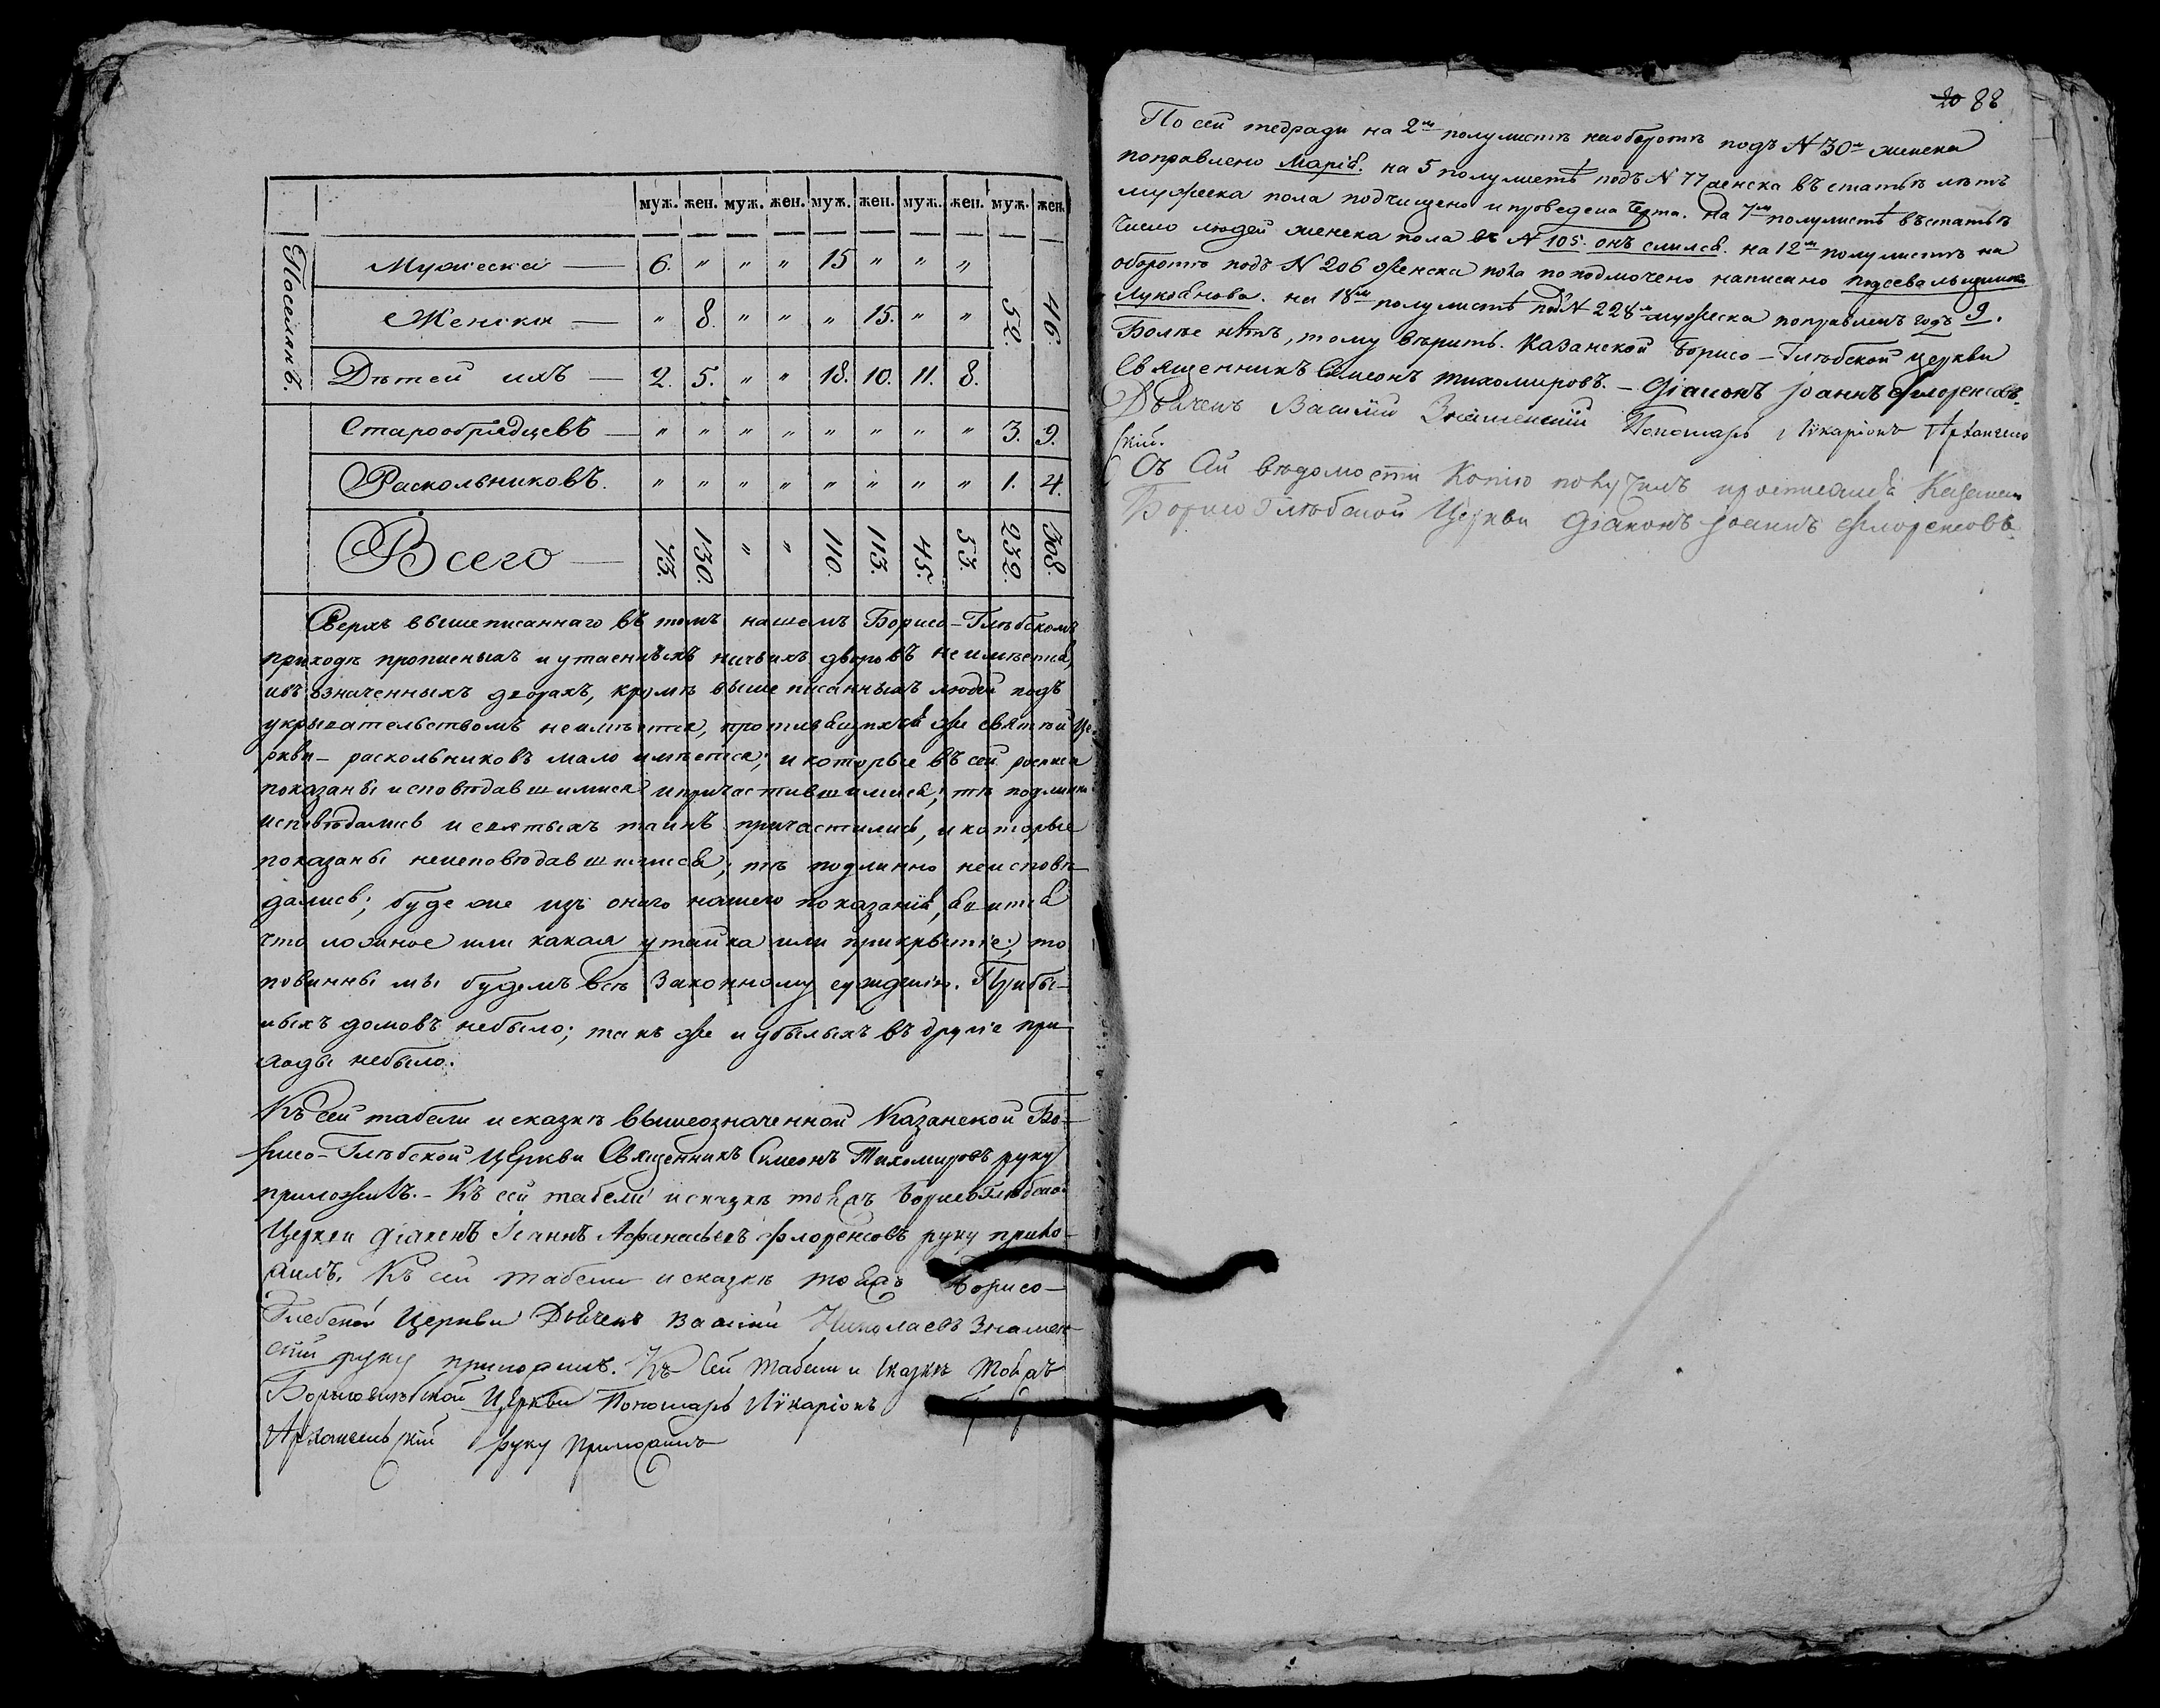 муж. жен. муж. жен. муж. жен. муж. жен. муж. жен.
Поселянъ.
Мужеска — 6. " " " 15 " " " 52. 46.
Женска — " 8. " " " 15. " "
Дѣтей ихъ — 2. 5. " " 18. 10. 11. 8.
Старообрядцевъ — " " " " " " " " 3. 9.
Раскольниковъ. " " " " " " " " 1. 4.
Всего — 73. 130. " " 110. 113. 45. 53. 232. 308.
Сверхъ вышеписаннаго въ томъ нашемъ Борисо-Глѣбскомъ
приходѣ прописныхъ и утаенныхъ ничьихъ дворовъ неимѣется,
ивъ означенныхъ дворахъ, кромѣ вышеписанныхъ людей подъ
укрывательствомъ неимѣется, противящихся же святой Це-
ркви – раскольниковъ мало имѣется; и которые въ сей росписи
показаны исповѣдавшимися и причастившимися; тѣ подлинно
исповѣдались и святыхъ таинъ причастились, и которые
показаны неисповѣдавшимися; тѣ подлинно неисповѣ-
дались; буде же изъ онаго нашего показанія, явится
что ложное или какая утайка или прикрытіе; то
повинны мы будемъ всѣ законному сужденію. Прибы-
лыхъ домовъ небыло; такъ же и убылыхъ въ другіе при-
ходы небыло.
Къ сей табели и сказкѣ вышеозначенной Казанской Бо-
рисо-Глѣбской Церкви Священникъ Симеонъ Тихомировъ руку
приложилъ. – Къ сей табели и сказкѣ тояжъ Борисоглѣбской
Церкви діаконъ Іоаннъ Афанасьевъ Флоренсовъ руку прило-
жилъ. Къ сей табели и сказкѣ тояжъ Борисо-
Глебской Церкви Дьячекъ Василій Николаевъ Знамен-
скій руку приложилъ. Къ сей табели и сказкѣ тояжъ
Борисоглѣбской Церкви Пономарь Иларіонъ
Архангельскій руку приложилъ
20 88
По сей тетради на 2м полулистѣ наоборотѣ подъ N 30м женска
поправлено Марія. на 5 полулистѣ подъ N 77 женска въ статьѣ лѣтъ
мужеска пола подчищено и проведена черта. На 7м полулистѣ въ статьѣ
число людей женска пола въ N 105. онъ слился. на 12м полулистѣ на
оборотѣ подъ N 206 женска пола по подмочено написано
Лукоянова. на 18м полулистѣ под N 228м мужеска поправленъ годъ 9.
Болѣе нѣтъ, тому вѣрить. Казанской Борисо-Глѣбской церкви
Священникъ Симеонъ Тихомировъ. – Діаконъ Іоаннъ Флоренсовъ.
Дьячекъ Василій Знаменскій Пономарь Иларіонъ Архангель
скій.
Съ сей вѣдомости копію получилъ Казанской
Борисоглѣбской Церкви Діаконъ Іоаннъ Флоренсовъ.